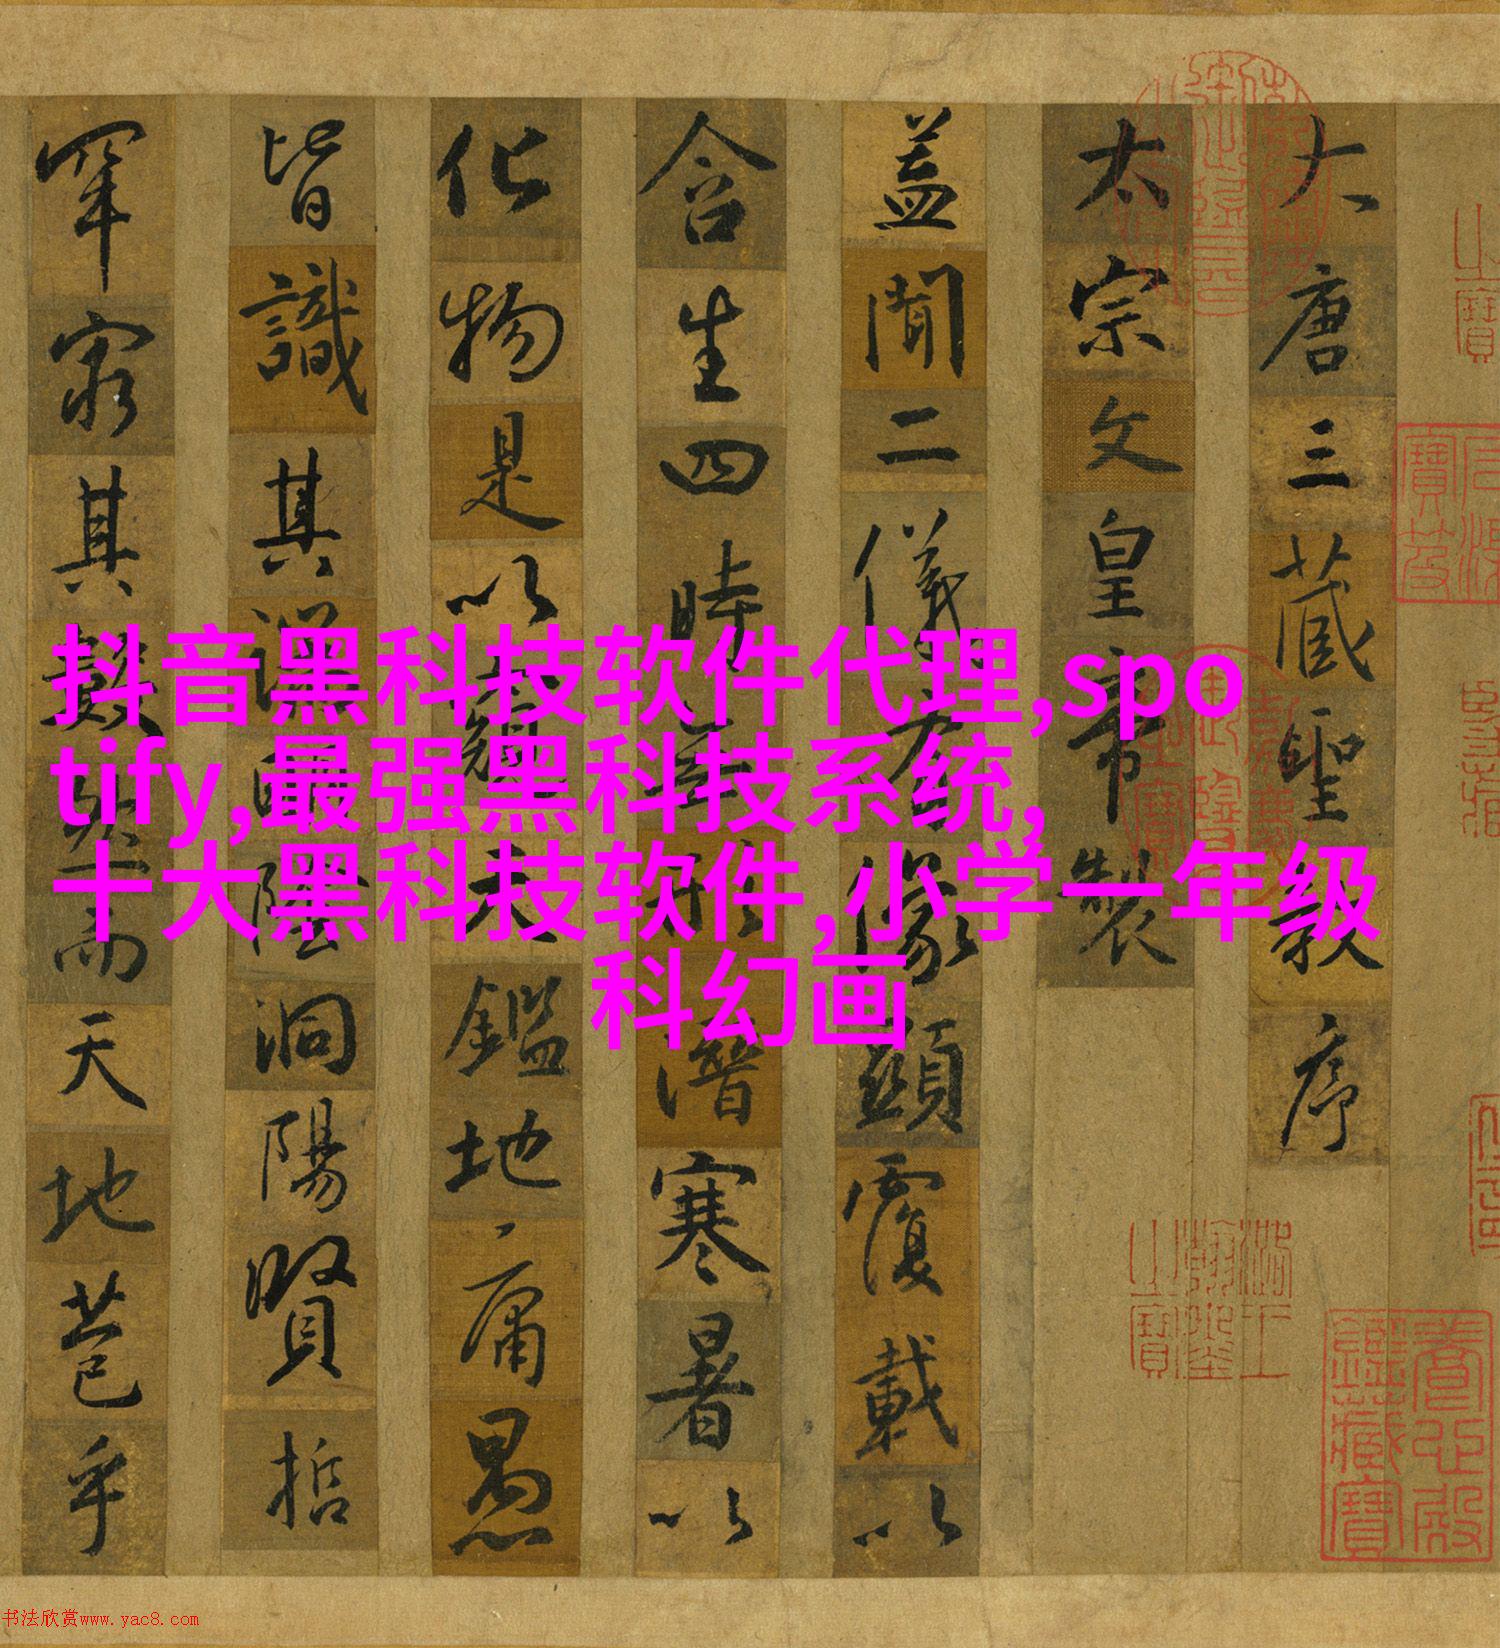 大唐三藏聖教序
太宗文皇帝製
蓋聞二儀有像顯覆載以
含生四時無形潛寒暑以
化物是以窺天鑑地庸愚
皆識其端明陰洞陽賢哲
罕窮其數然而天地苞乎
抖音黑科技软件代理,spo
tify,最强黑科技系统,
十大黑科技软件,小学一年级
科幻画
石渠寶笈
養心殿鑑藏寶
书法欣赏www.yac8.com